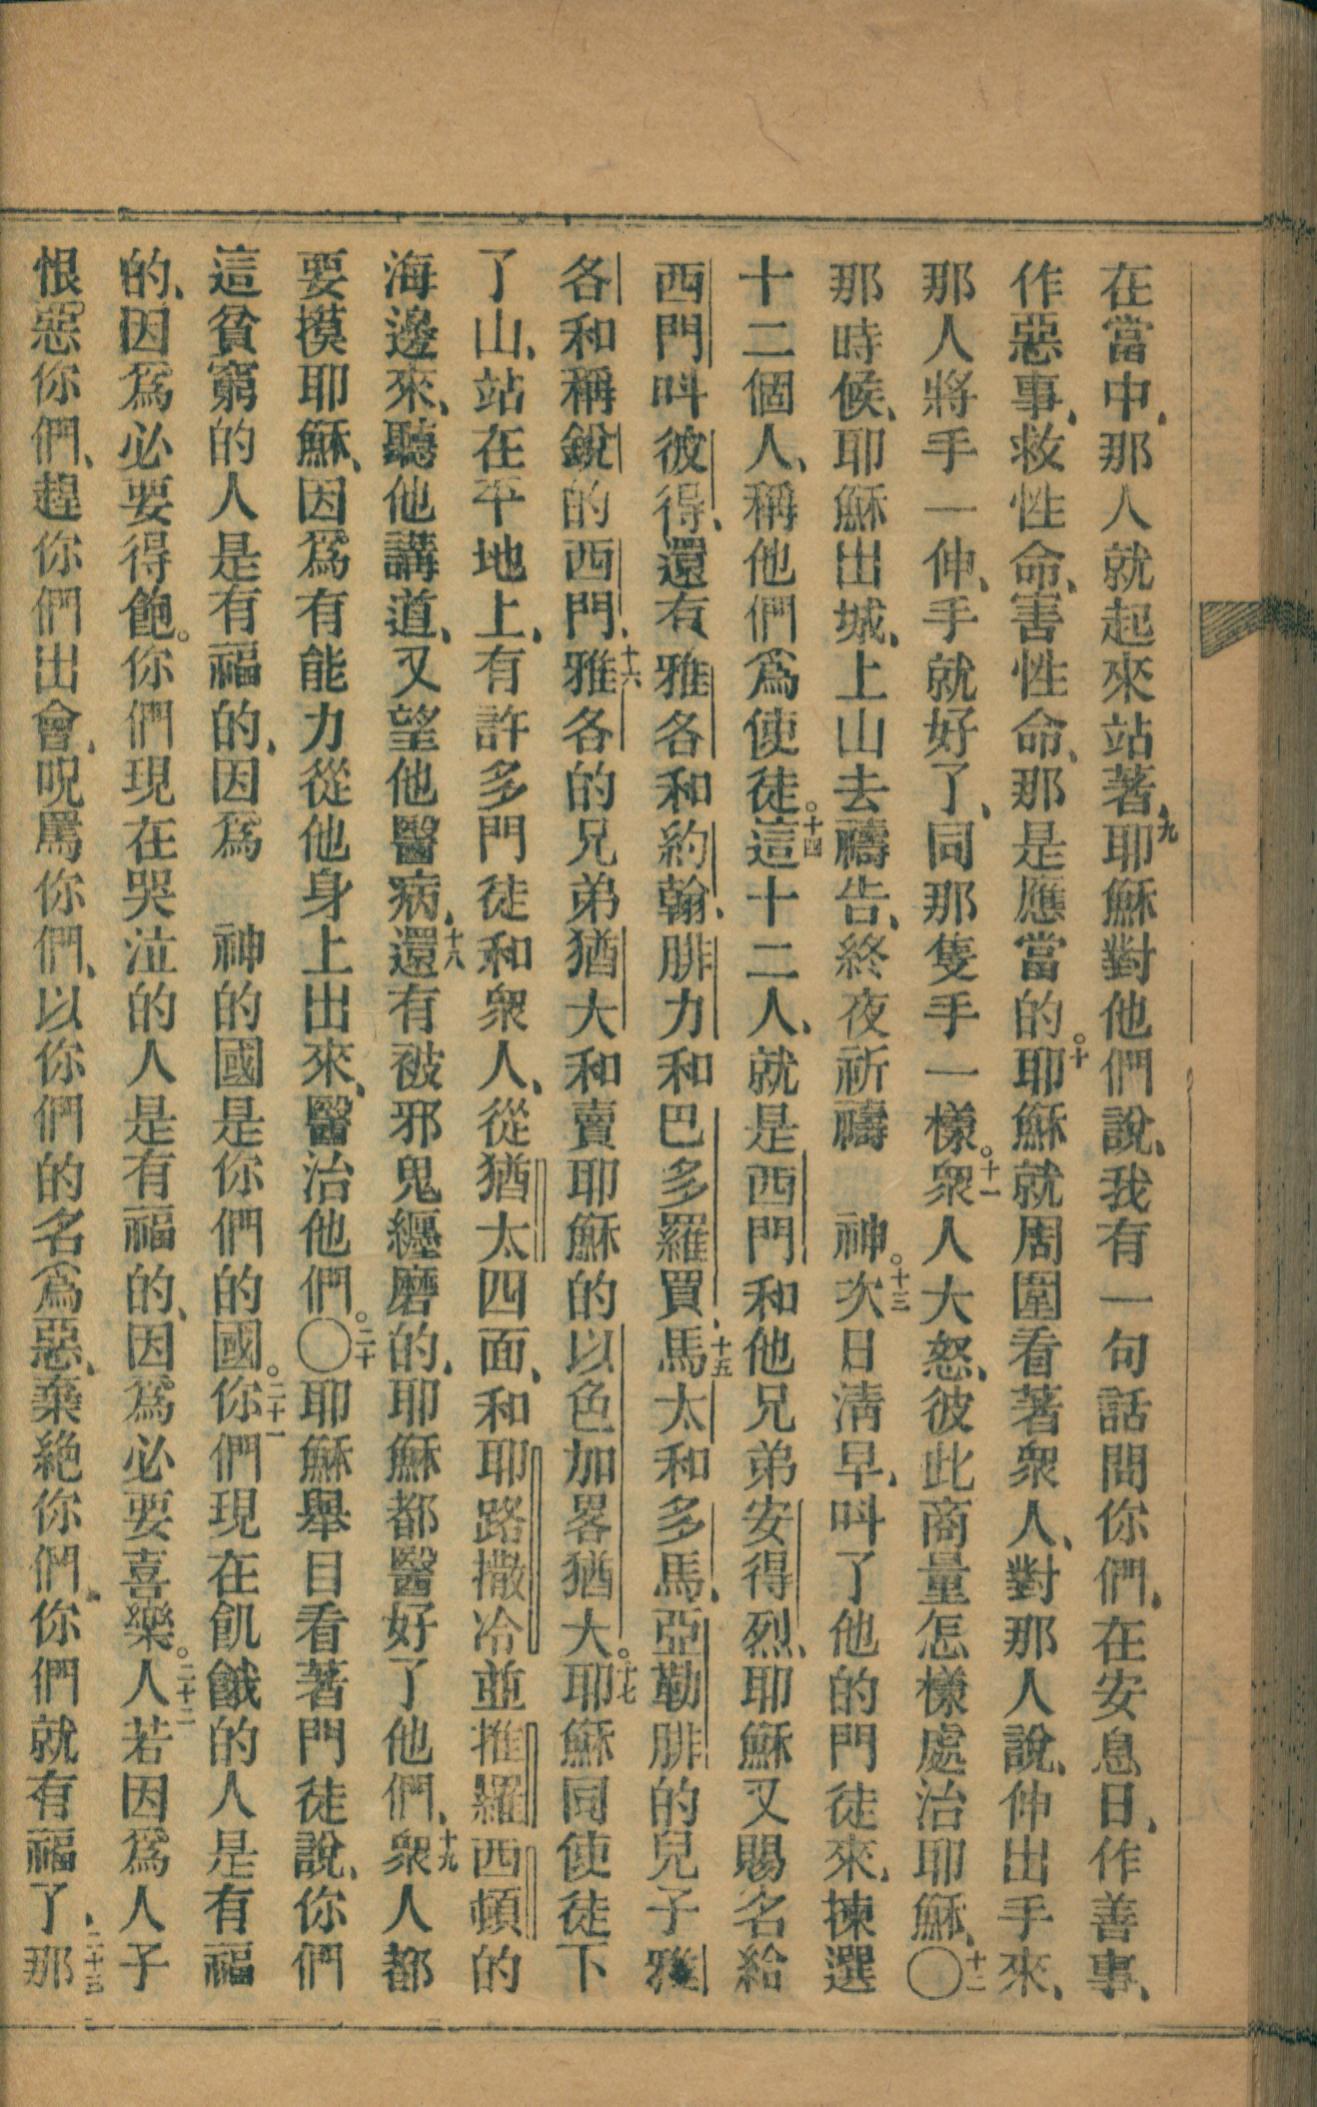 在當中、那人就起來站著、九耶穌對他們說、我有一句話問你們、在安息日、作善事、
作惡事、救性命、害性命、那是應當的。十耶穌就周圍看著衆人、對那人說、伸出手來、
那人將手一伸、手就好了、同那隻手一樣。十一衆人大怒、彼此商量怎樣處治耶穌、〇十二
那時候、耶穌出城、上山去禱告、終夜祈禱　神。十三次日淸早、呌了他的門徒來、揀選
十二個人、稱他們爲使徒。十四這十二人、就是西門和他兄弟安得烈、耶穌又賜名給
西門呌彼得、還有雅各和約翰、腓力和巴多羅買、十五馬太和多馬、亞勒腓的兒子雅
各和稱銳的西門、十六雅各的兄弟猶大和賣耶穌的以色加畧猶大。十七耶穌同使徒下
了山、站在平地上、有許多門徒和衆人、從猶太四面、和耶路撒冷並推羅西頓的
海邊來、聽他講道、又望他醫病、十八還有被邪鬼纒磨的、耶穌都醫好了他們、十九衆人都
要摸耶穌、因爲有能力從他身上出來、醫治他們。〇二十耶穌舉目看著門徒說、你們
這貧窮的人是有福的、因爲　神的國是你們的國。二十一你們現在飢餓的人是有福
的、因爲必要得飽。你們現在哭泣的人是有福的、因爲必要喜樂。二十二人若因爲人子
恨惡你們、趕你們出會、呪罵你們、以你們的名爲惡、棄絶你們、你們就有福了、二十三那